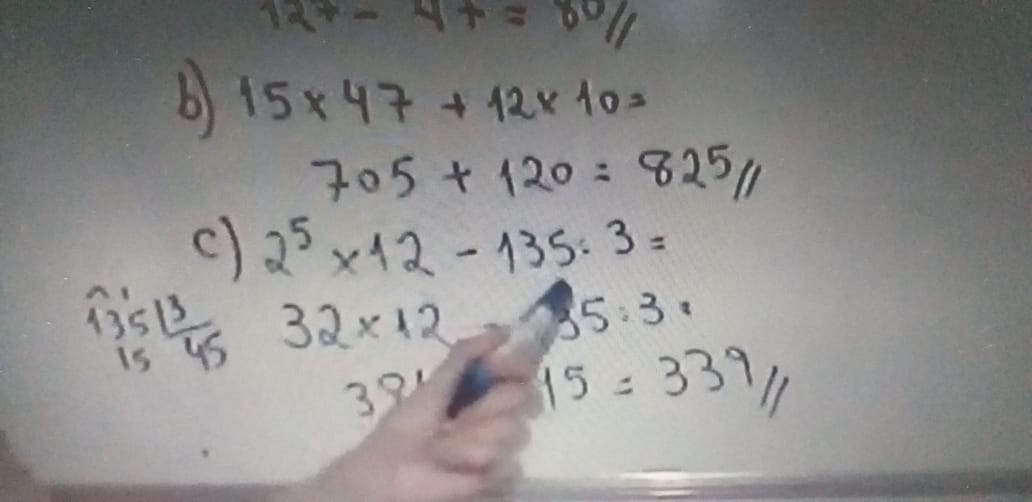 127 - 47 = 80//
b) 15 x 47 + 12 x 10 =
705 + 120 = 825//
c) 2⁵ x 12 - 135 : 3 =
135 | 3 32 x 12 - 35 : 3 .
15 45
38 15 = 339//